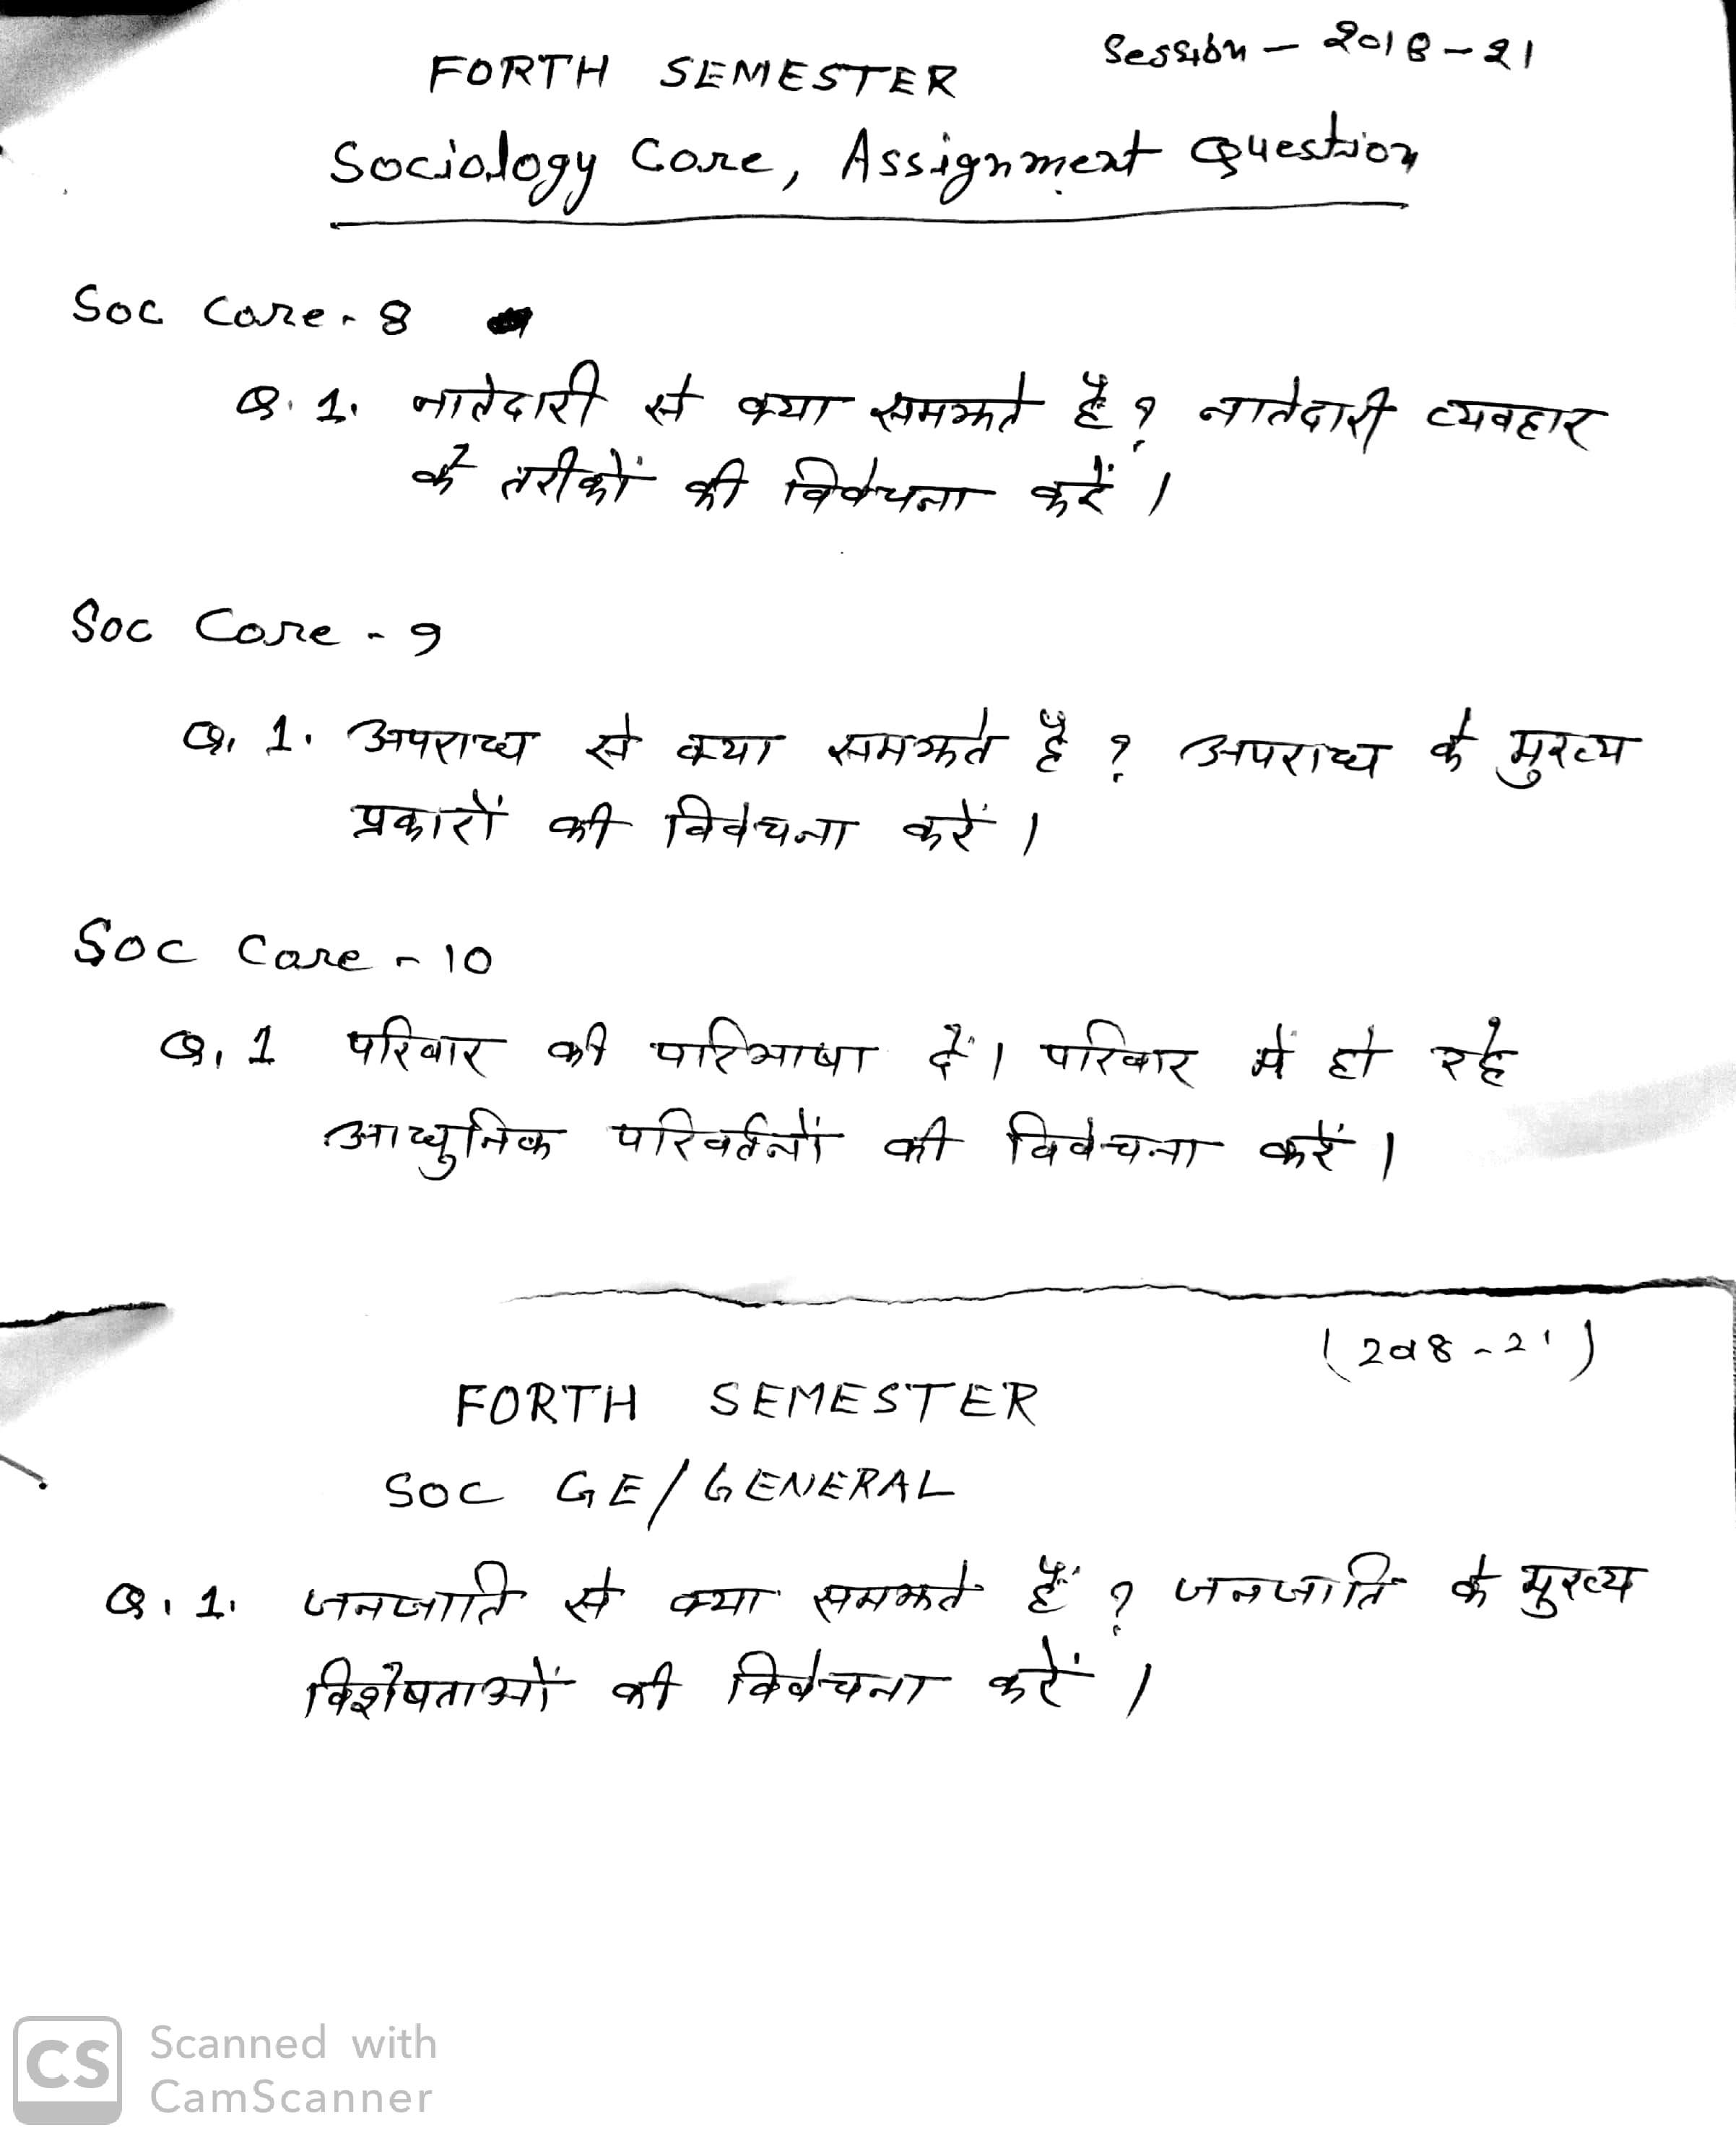 Session - 2018-21
FORTH SEMESTER
Sociology Core, Assignment Question
Soc Core - 8
Q. 1. नातेदारी से क्या समझते हैं ? नातेदारी व्यवहार
के तरीकों की विवेचना करें ।
Soc Core - 9
Q. 1. अपराध से क्या समझते हैं ? अपराध के मुख्य
प्रकारों की विवेचना करें ।
Soc Core - 10
Q. 1 परिवार की परिभाषा दें । परिवार में हो रहे
आधुनिक परिवर्तनों की विवेचना करें ।
(2018-21)
FORTH SEMESTER
SOC GE/GENERAL
Q. 1. जनजाति से क्या समझते हैं ? जनजाति के मुख्य
विशेषताओं की विवेचना करें ।
CS
Scanned with
CamScanner